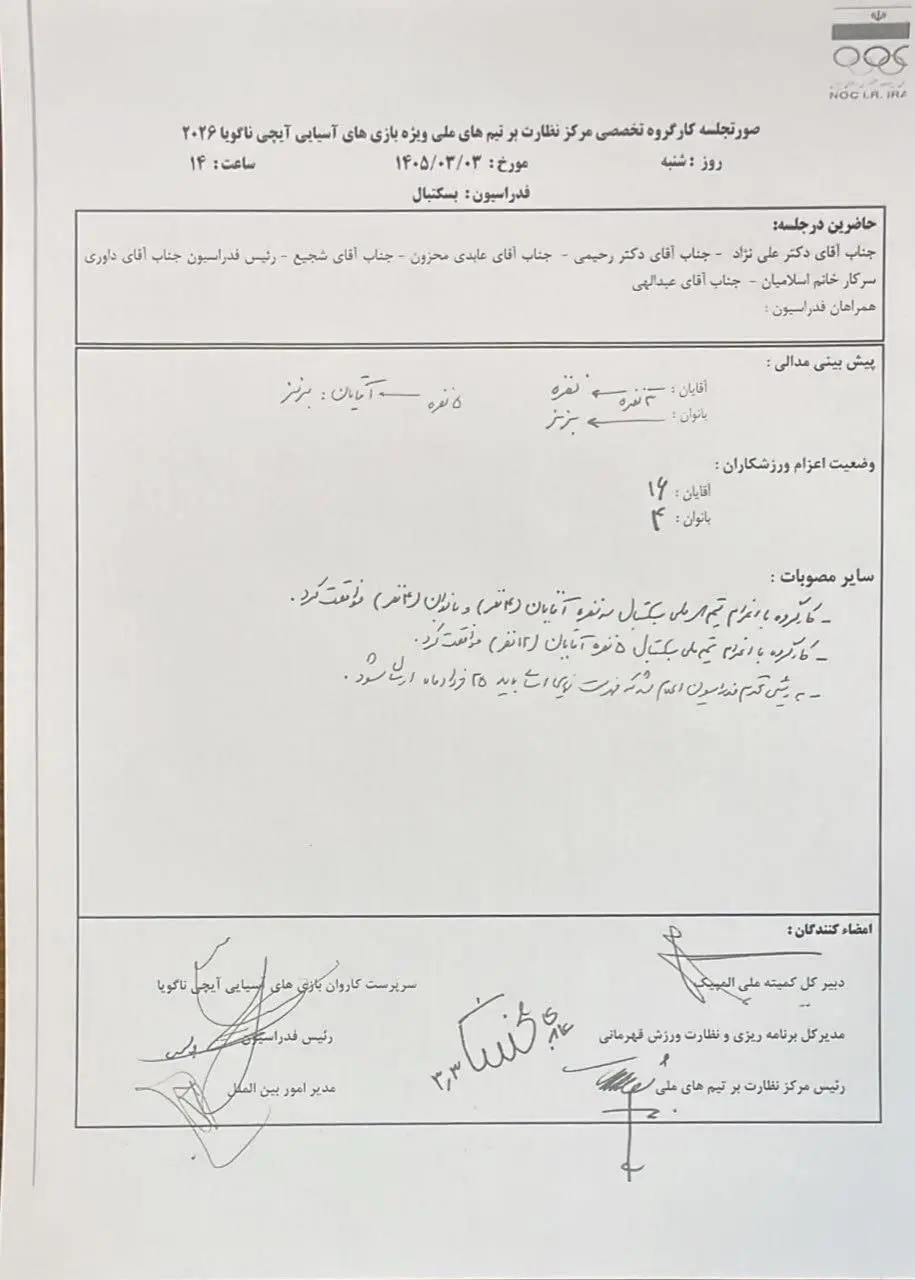 NOC I.R. IRA
صورتجلسه کارگروه تخصصی مرکز نظارت بر تیم های ملی ویژه بازی های آسیایی آیچی ناگویا ۲۰۲۶
روز : شنبه مورخ: ۱۴۰۵/۰۳/۰۳ ساعت: ۱۴
فدراسیون: بسکتبال
حاضرین درجلسه:
جناب آقای دکتر علی نژاد - جناب آقای دکتر رحیمی - جناب آقای عابدی محزون - جناب آقای شجیع - رئیس فدراسیون جناب آقای داوری
سرکار خانم اسلامیان - جناب آقای عبدالهی
همراهان فدراسیون :
پیش بینی مدالی :
آقایان : ۳ نفره ← نقره ۵ نفره ← آقایان : برنز
بانوان : ← برنز
وضعیت اعزام ورزشکاران :
آقایان : ۱۶
بانوان : ۴
سایر مصوبات :
- کارگروه با اعزام تیم های ملی بسکتبال سه نفره آقایان (۴نفر) و بانوان (۴نفر) موافقت کرد.
- کارگروه با اعزام تیم ملی بسکتبال ۵ نفره آقایان (۱۲نفر) موافقت کرد.
- به رئیس محترم فدراسیون اعلام شد که فهرست نهایی اسامی باید ۲۵ خردادماه ارسال شود.
امضاء کنندگان :
دبیر کل کمیته ملی المپیک سرپرست کاروان بازی های آسیایی آیچی ناگویا
مدیرکل برنامه ریزی و نظارت ورزش قهرمانی رئیس فدراسیون
رئیس مرکز نظارت بر تیم های ملی مدیر امور بین الملل
۳٫۳